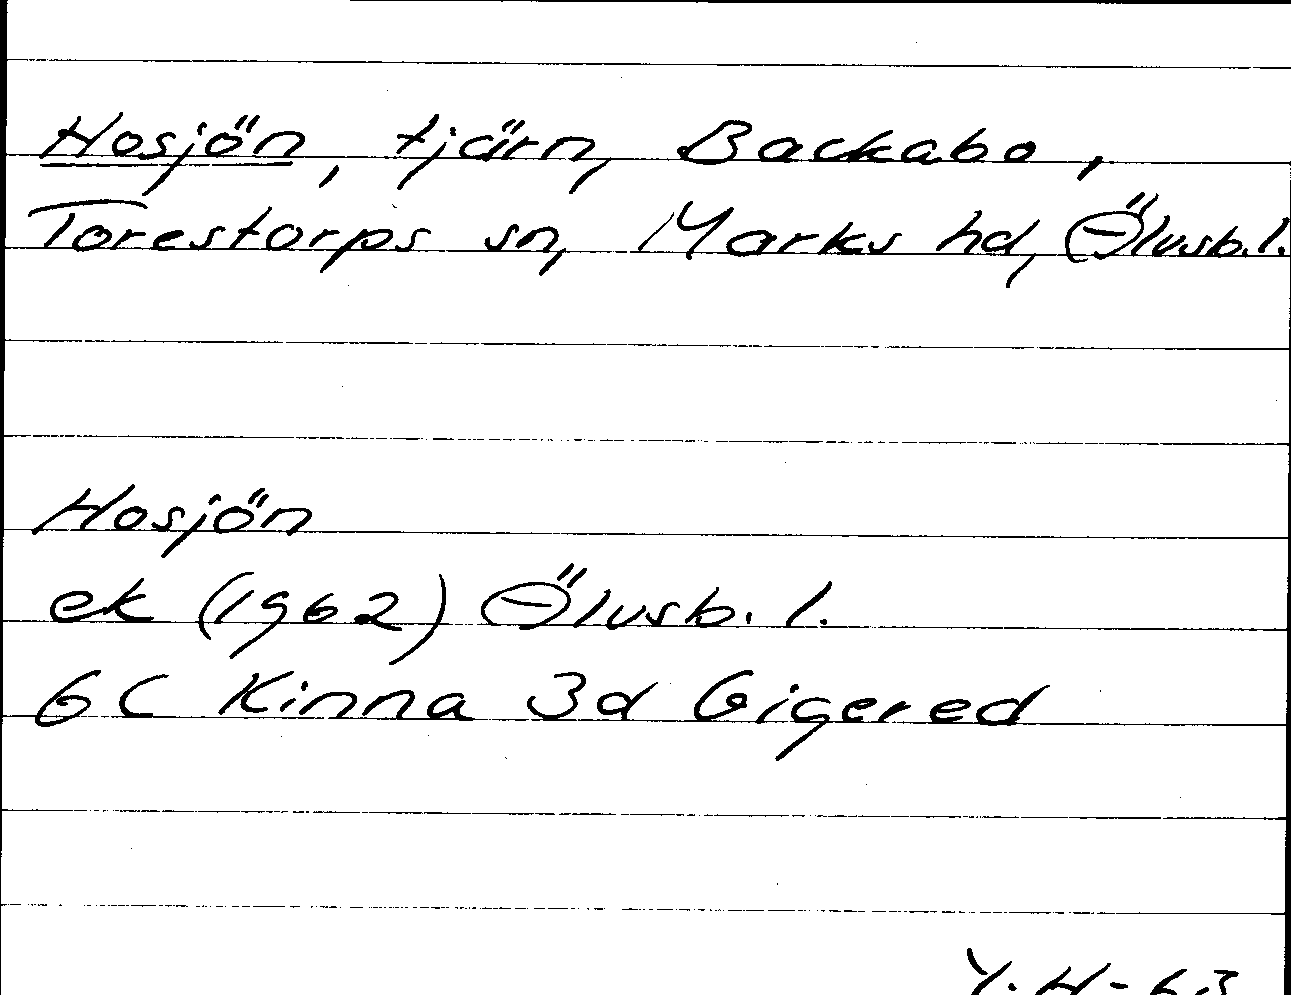 Hosjön, tjärn, Backabo,
Torestorps sn, Marks hd, Älvsb. l.
Hosjön
ek (1962) Älvsb. l.
6C Kinna 3d Gigered